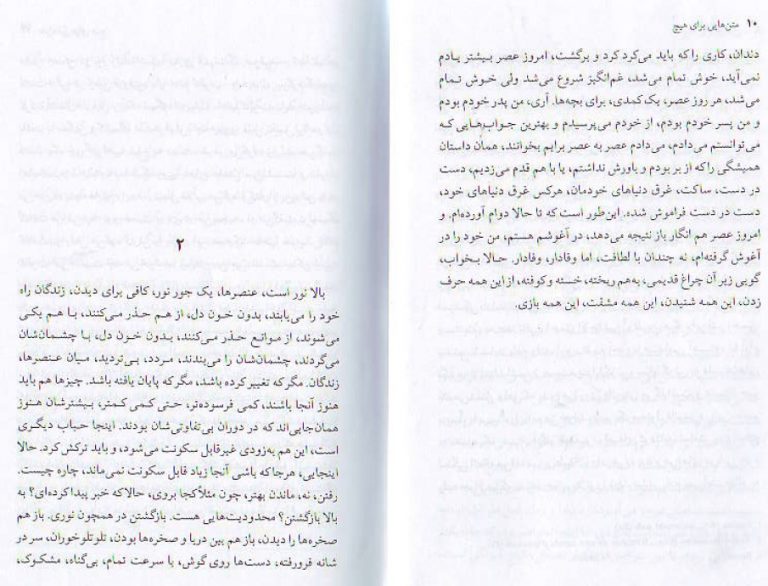 ۱۰ متن‌هایی برای هیچ
دندان، کاری را که باید می‌کرد کرد و برگشت، امروز عصر بیشتر یادم
نمی‌آید، خوش تمام می‌شد، غم‌انگیز شروع می‌شد ولی خوش تمام
می‌شد، هر روز عصر، یک کمدی، برای بچه‌ها. آری، من پدر خودم بودم
و من پسر خودم بودم، از خودم می‌پرسیدم و بهترین جواب‌هایی که
می‌توانستم می‌دادم، می‌دادم عصر به عصر برایم بخوانند، همان داستان
همیشگی را که از بر بودم و باورش نداشتم، یا با هم قدم می‌زدیم، دست
در دست، ساکت، غرق دنیاهای خودمان، هرکس غرق دنیاهای خود،
دست در دست فراموش شده. این‌طور است که تا حالا دوام آورده‌ام. و
امروز عصر هم انگار باز نتیجه می‌دهد، در آغوشم هستم، من خود را در
آغوش گرفته‌ام، نه چندان با لطافت، اما وفادار، وفادار. حالا بخواب،
گویی زیر آن چراغ قدیمی، به‌هم ریخته، خسته و کوفته، از این همه حرف
زدن، این همه شنیدن، این همه مشقت، این همه بازی.
۲
بالا نور است، عنصرها، یک جور نور، کافی برای دیدن، زندگان راه
خود را می‌یابند، بدون خون دل، از هم حذر می‌کنند، با هم یکی
می‌شوند، از موانع حذر می‌کنند، بدون خون دل، با چشمان‌شان
می‌گردند، چشمان‌شان را می‌بندند، مردد، بی‌تردید، میان عنصرها،
زندگان. مگر که تغییر کرده باشد، مگر که پایان یافته باشد. چیزها هم باید
هنوز آنجا باشند، کمی فرسوده‌تر، حتی کمی کمتر، بیشترشان هنوز
همان‌جایی‌اند که در دوران بی‌تفاوتی‌شان بودند. اینجا حباب دیگری
است، این هم به‌زودی غیرقابل سکونت می‌شود، و باید ترکش کرد. حالا
اینجایی، هرجا که باشی آنجا زیاد قابل سکونت نمی‌ماند، چاره چیست.
رفتن، نه، ماندن بهتر، چون مثلاً کجا بروی، حالا که خبر پیدا کرده‌ای؟ به
بالا بازگشتن؟ محدودیت‌هایی هست. بازگشتن در همچون نوری. باز هم
صخره‌ها را دیدن، باز هم بین دریا و صخره‌ها بودن، تلوتلوخوران، سر در
شانه فرورفته، دست‌ها روی گوش، با سرعت تمام، بی‌گناه، مشکوک،